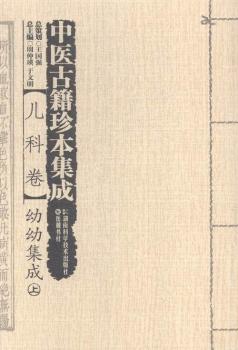 中医古籍珍本集成
总策划◎王国强
总主编◎周仲瑛 于文明
【儿科卷】
幼幼集成 上
湖南科学技术出版社
岳麓书社